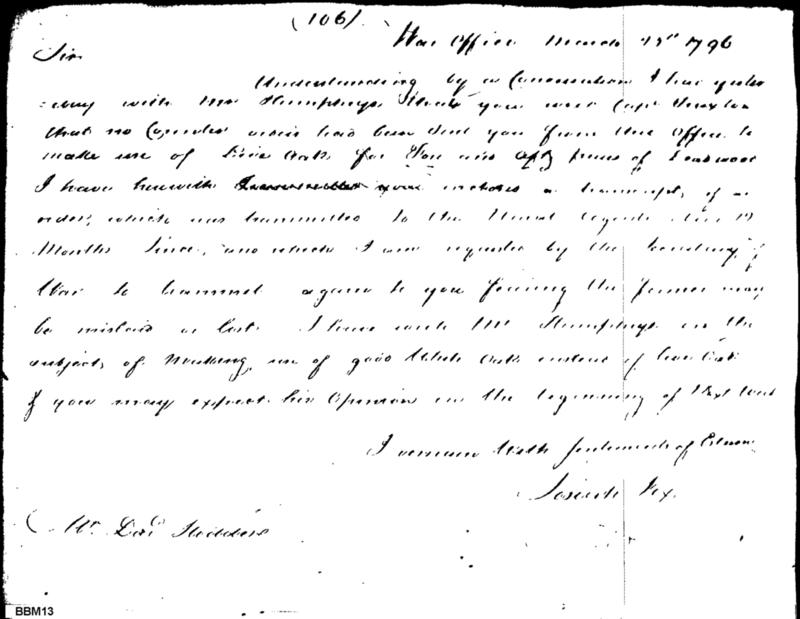 (106)
War Office March 1796
Sir
Understanding by a Conversation I had yester
=day with Mr Humphrys that you and Capt Truxton
that no order had been sent you from this Office to
make use of Live Oak for fore and aft pieces of Deadwood
I have herewith inclosed a transcript of an
order, which was transmitted to the Naval Agents
Months Since, and which I am requested by the Secretary of
War to transmit again to you fearing the former may
be mislaid or lost. I have with Mr Humphrys on the
subject of making use of good White Oak instead of Live Oak
& you may expect his Opinion in the beginning of Next Week
I remain with sentiments of Esteem
Josiah Fox.
Mr Stodder
BBM13